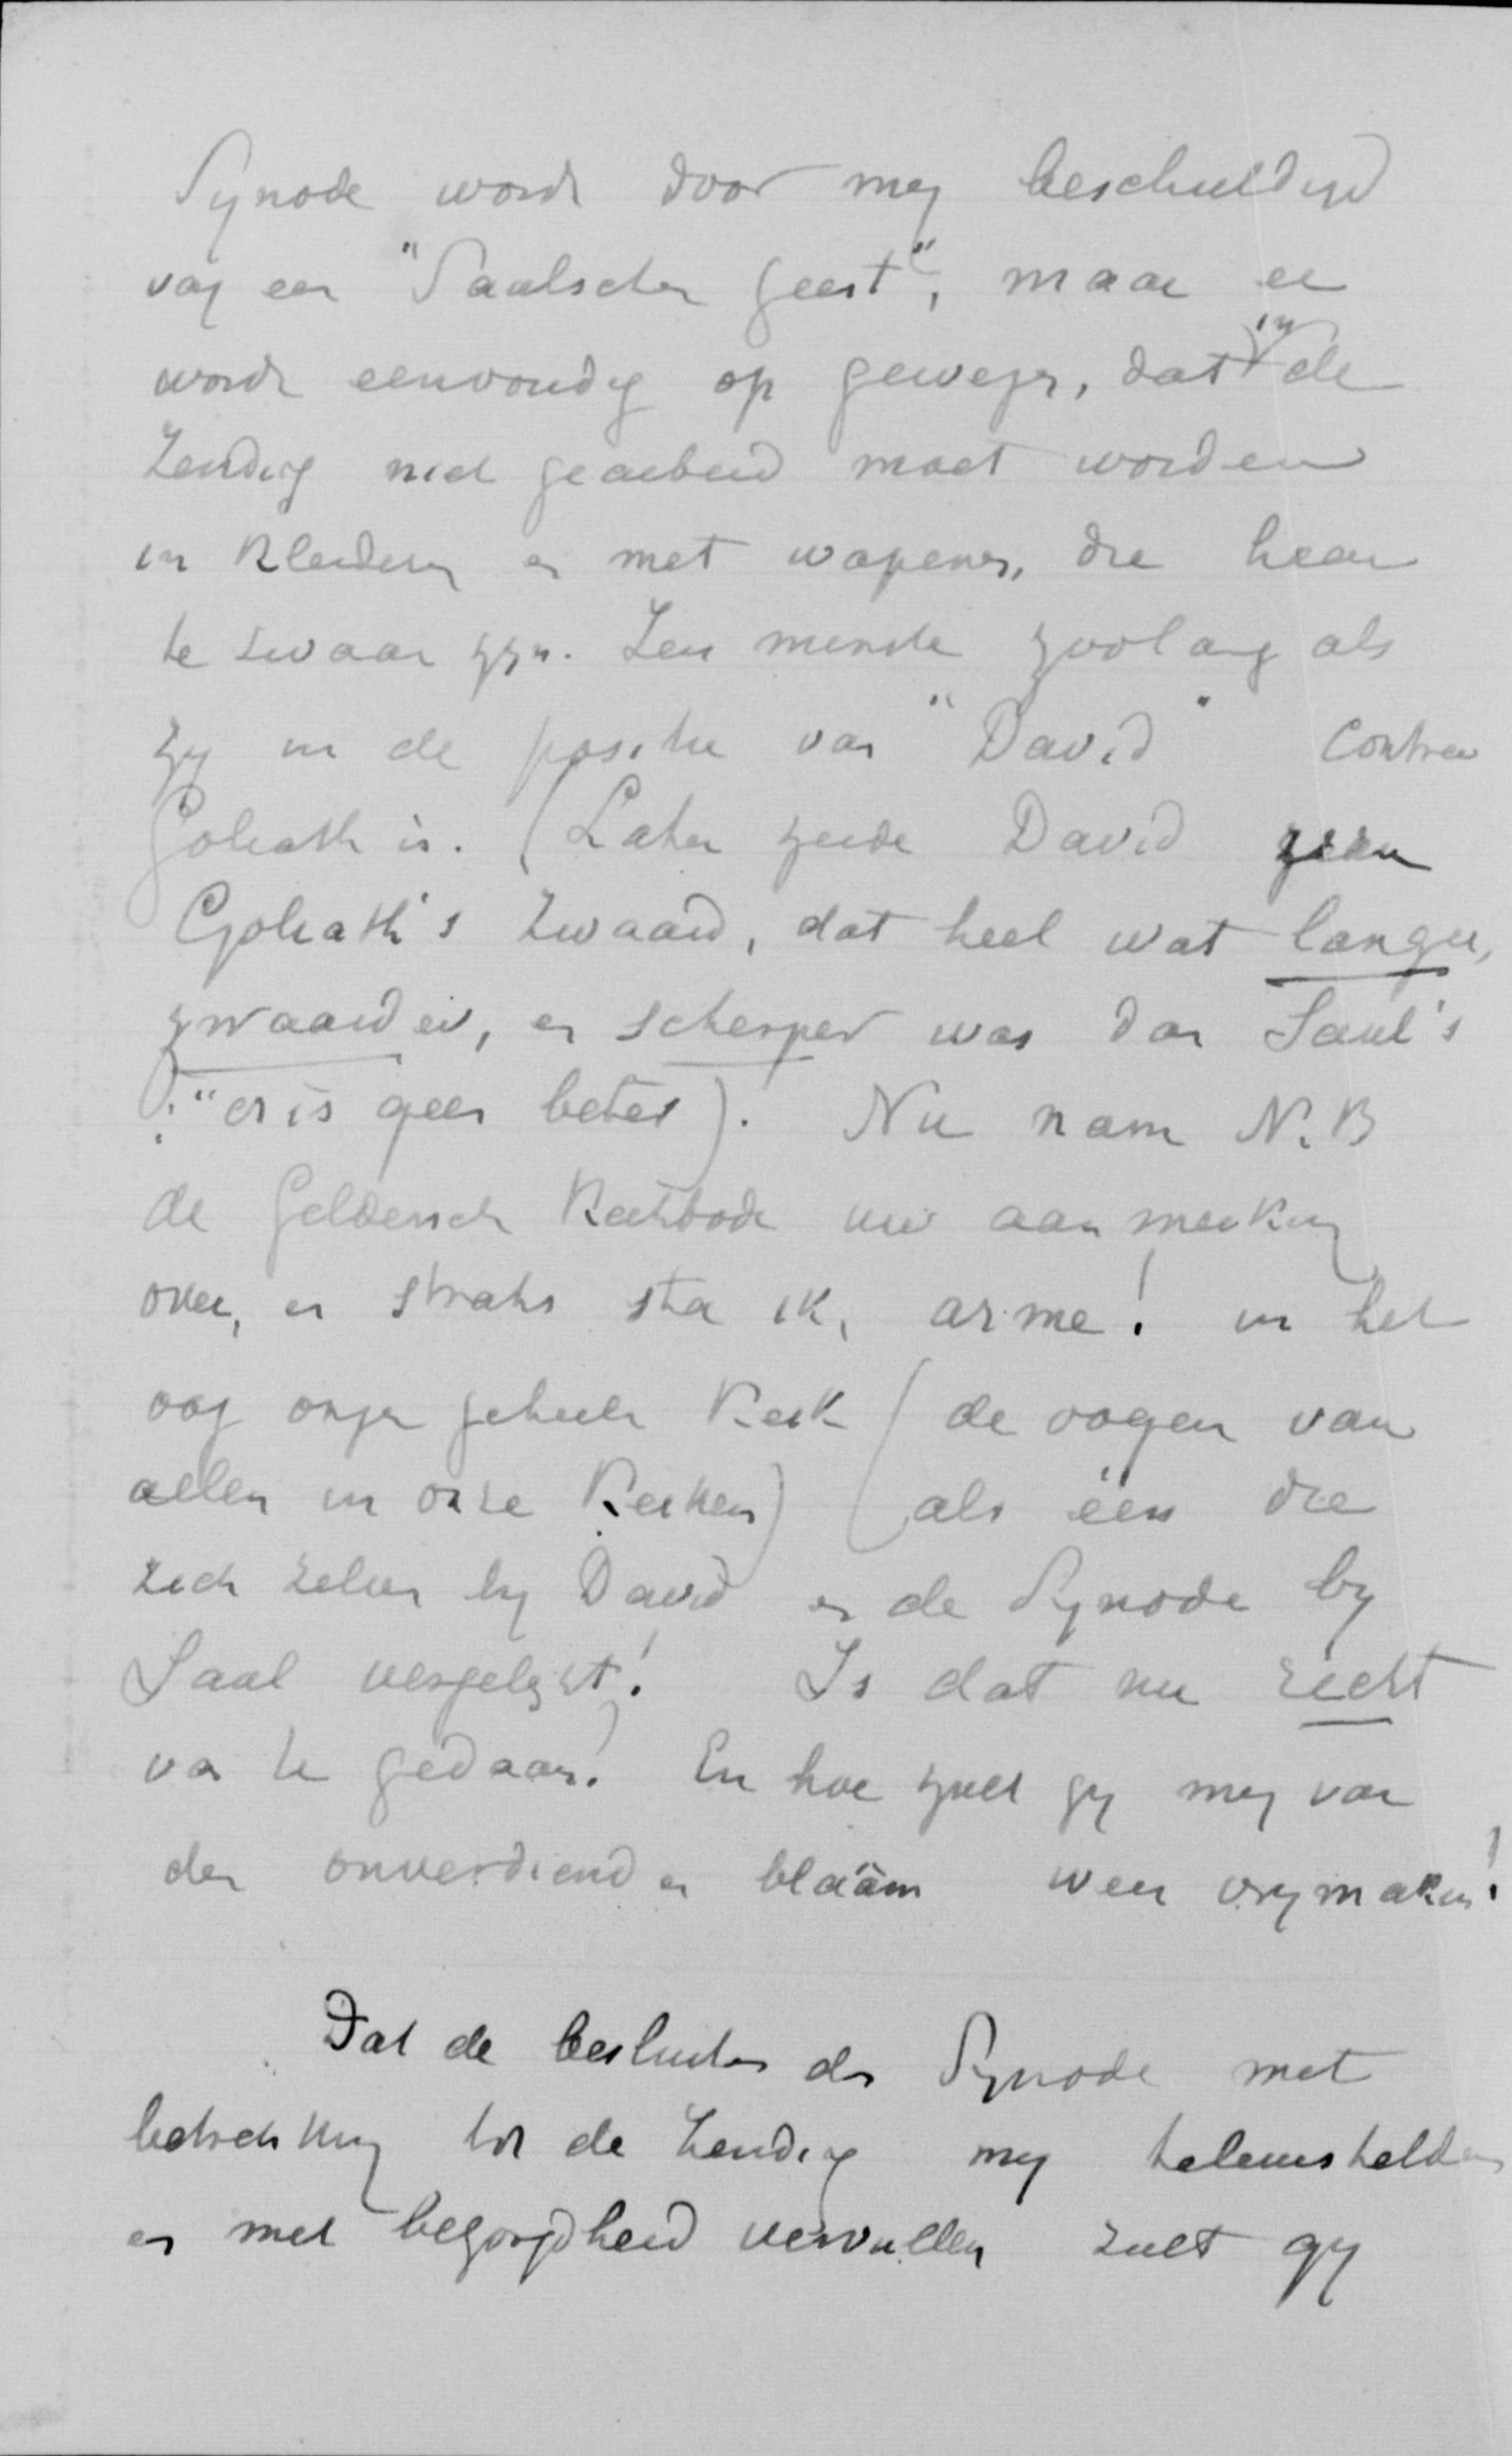 Synode wordt door mij beschuldigd
van een "Saulschen geest", maar er
wordt eenvoudig op gewezen, dat in de
Zending niet gearbeid moet worden
in kleederen en met wapenen, die haar
te zwaar zijn. Ten minste zoolang als
zij in de positie van "David" contra
Goliath is. (Later zeide David
Goliath's zwaard, dat heel wat langer,
zwaarder, en scherper was dan Saul's
: "er is geen beter). Nu nam N.B
de Geldersch Kerkbode uw aanmerking
over, en straks sta ik, arme! in het
oog onzer geheele Kerk (de oogen van
allen in onze Kerken) als één die
zich zelven bij David en de Synode bij
Saul vergelijkt! Is dat nu recht
van te gedaan! En hoe zult gij mij van
den onverdienden blaam weer vrijmaken!
Dat de besluiten der Synode met
betrekking tot de Zending mij teleurstelden
en met bezorgdheid vervullen zult gij